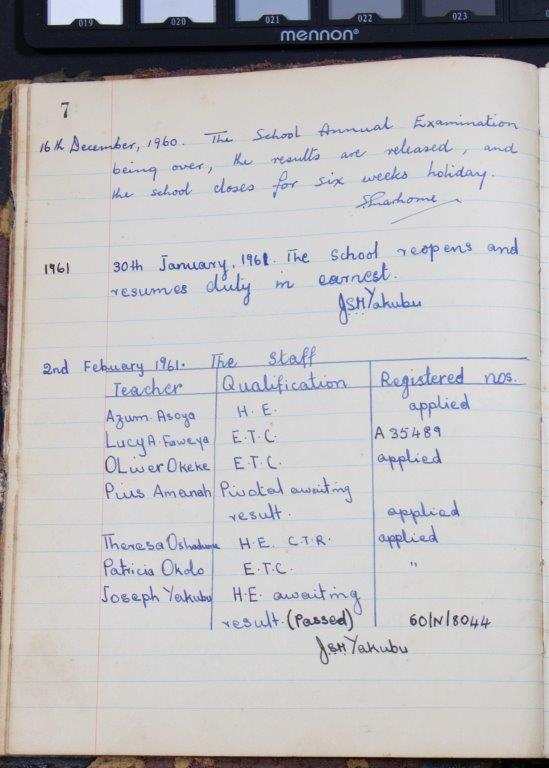 019 020 021 022 023
mennon®
7
16th December, 1960. The School Annual Examination
being over, the results are released, and
the school closes for six weeks holiday.
1961 30th January, 1961. The School reopens and
resumes duty in earnest.
JSHYakubu
2nd Febuary 1961. The Staff
Teacher Qualification Registered nos.
Azum. Asoya H.E. applied
Lucy A. Faweya E.T.C. A 35489
Oliver Okeke E.T.C. applied
Pius Amanah Pivotal awaiting
result. applied
Theresa H.E. C.T.R. applied
Patricia Okolo E.T.C. "
Joseph Yakubu H.E. awaiting
result. (Passed) 60/N/8044
JSHYakubu